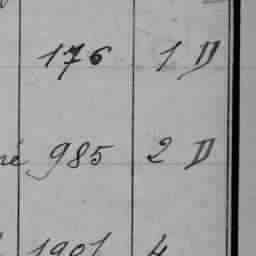 176 1 D
985 2 D
1901 4